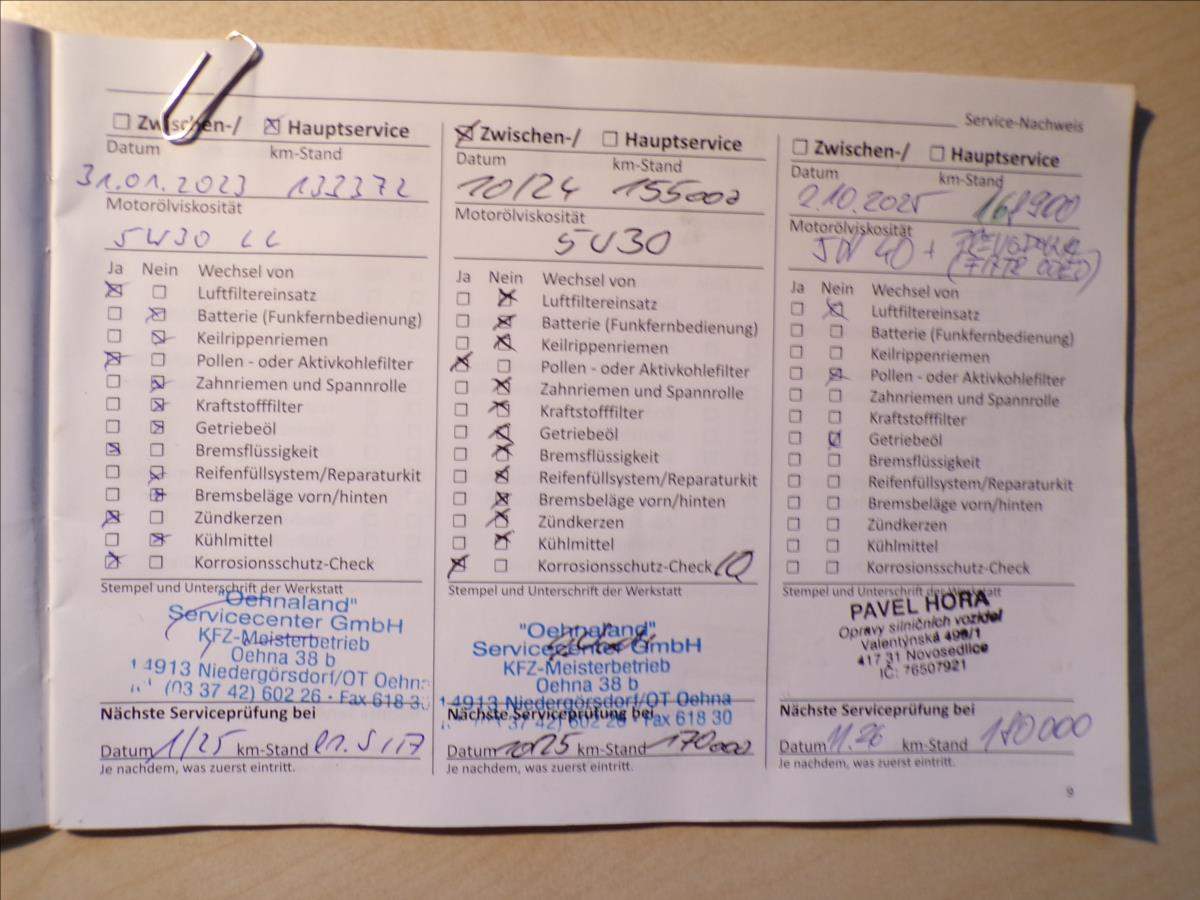 Service-Nachweis
☐ Zwischen-/ ☒ Hauptservice
Datum km-Stand
31.01.2023 133372
Motorölviskosität
5W30 LL
Ja Nein Wechsel von
☒ ☐ Luftfiltereinsatz
☐ ☒ Batterie (Funkfernbedienung)
☐ ☒ Keilrippenriemen
☒ ☐ Pollen - oder Aktivkohlefilter
☐ ☒ Zahnriemen und Spannrolle
☐ ☒ Kraftstofffilter
☐ ☒ Getriebeöl
☒ ☐ Bremsflüssigkeit
☐ ☒ Reifenfüllsystem/Reparaturkit
☐ ☒ Bremsbeläge vorn/hinten
☒ ☐ Zündkerzen
☐ ☒ Kühlmittel
☒ ☐ Korrosionsschutz-Check
Stempel und Unterschrift der Werkstatt
"Oehnaland"
Servicecenter GmbH
KFZ-Meisterbetrieb
Oehna 38 b
14913 Niedergörsdorf/OT Oehna
(03 37 42) 602 26 · Fax 618 30
Nächste Serviceprüfung bei
Datum 1/25 km-Stand
Je nachdem, was zuerst eintritt.
☒ Zwischen-/ ☐ Hauptservice
Datum km-Stand
10/24 155000
Motorölviskosität
5W30
Ja Nein Wechsel von
☐ ☒ Luftfiltereinsatz
☐ ☒ Batterie (Funkfernbedienung)
☐ ☒ Keilrippenriemen
☒ ☐ Pollen - oder Aktivkohlefilter
☐ ☒ Zahnriemen und Spannrolle
☐ ☒ Kraftstofffilter
☐ ☒ Getriebeöl
☐ ☒ Bremsflüssigkeit
☐ ☒ Reifenfüllsystem/Reparaturkit
☐ ☒ Bremsbeläge vorn/hinten
☐ ☒ Zündkerzen
☐ ☒ Kühlmittel
☒ ☐ Korrosionsschutz-Check
Stempel und Unterschrift der Werkstatt
"Oehnaland"
Servicecenter GmbH
KFZ-Meisterbetrieb
Oehna 38 b
14913 Niedergörsdorf/OT Oehna
37 42) 602 26 · Fax 618 30
Nächste Serviceprüfung bei
Datum 10/25 km-Stand 170000
Je nachdem, was zuerst eintritt.
☐ Zwischen-/ ☐ Hauptservice
Datum km-Stand
2.10.2025
Motorölviskosität
5W 40 +
Ja Nein Wechsel von
☐ ☒ Luftfiltereinsatz
☐ ☐ Batterie (Funkfernbedienung)
☐ ☐ Keilrippenriemen
☐ ☒ Pollen - oder Aktivkohlefilter
☐ ☐ Zahnriemen und Spannrolle
☐ ☐ Kraftstofffilter
☐ ☒ Getriebeöl
☐ ☐ Bremsflüssigkeit
☐ ☐ Reifenfüllsystem/Reparaturkit
☐ ☐ Bremsbeläge vorn/hinten
☐ ☐ Zündkerzen
☐ ☐ Kühlmittel
☐ ☐ Korrosionsschutz-Check
Stempel und Unterschrift der Werkstatt
PAVEL HORA
Opravy silničních vozidel
Valentýnská 498/1
417 31 Novosedlice
IČ: 76507921
Nächste Serviceprüfung bei
Datum 11.26 km-Stand 180000
Je nachdem, was zuerst eintritt.
9